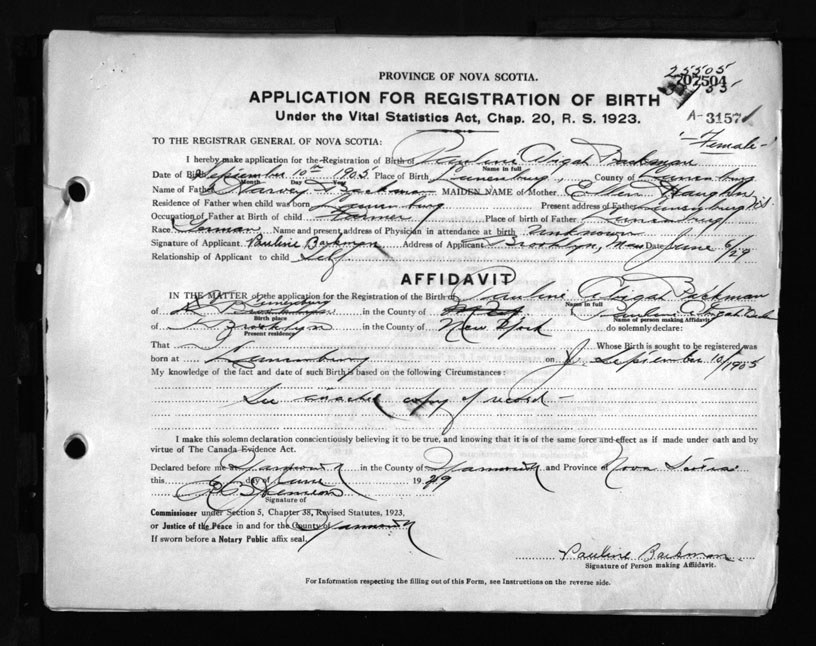 25505
207504
PROVINCE OF NOVA SCOTIA.
APPLICATION FOR REGISTRATION OF BIRTH
Under the Vital Statistics Act, Chap. 20, R. S. 1923.
A-3157
-Female-
TO THE REGISTRAR GENERAL OF NOVA SCOTIA:
I hereby make application for the Registration of Birth of Pauline Abigal Backman
Name in full
Date of Birth September 10th 1905 Place of Birth Lunenburg, County of Lunenburg
Month Day Year
Name of Father Harvey Backman MAIDEN NAME of Mother Ellen Haughn
Residence of Father when child was born Lunenburg Present address of Father Lunenburg N.S.
Occupation of Father at Birth of child Farmer Place of birth of Father Lunenburg
Race German Name and present address of Physician in attendance at birth Unknown
Signature of Applicant Pauline Backman Address of Applicant Brooklyn, Date June 6/29
Relationship of Applicant to child Self
AFFIDAVIT
IN THE MATTER of the application for the Registration of the Birth of Pauline Abigal Backman
Name in full
of Lunenburg in the County of Pauline Abigal
Birth place Name of person making Affidavit
of Brooklyn in the County of New York do solemnly declare:
Present residence
That I Whose Birth is sought to be registered was
born at Lunenburg on September 10/1905
My knowledge of the fact and date of such Birth is based on the following Circumstances:
See copy of record -
I make this solemn declaration conscientiously believing it to be true, and knowing that it is of the same force and effect as if made under oath and by
virtue of The Canada Evidence Act.
Declared before me at Yarmouth in the County of Yarmouth and Province of Nova Scotia
this day of June 1929
Signature of
Commissioner under Section 5, Chapter 38, Revised Statutes, 1923,
or Justice of the Peace in and for the County of Yarmouth
If sworn before a Notary Public affix seal.
Pauline Backman
Signature of Person making Affidavit.
For Information respecting the filling out of this Form, see Instructions on the reverse side.